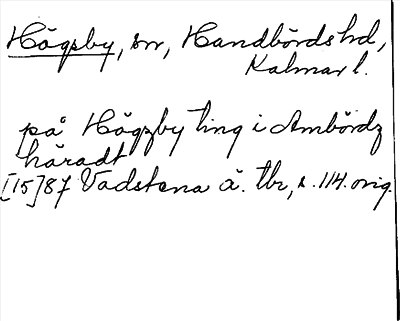 Högsby, sn, Handbörds hd,
Kalmar l.
på Högzby ting i Ambördz
häradt
[15]87 Vadstena ä. tbr, s. 114. orig.